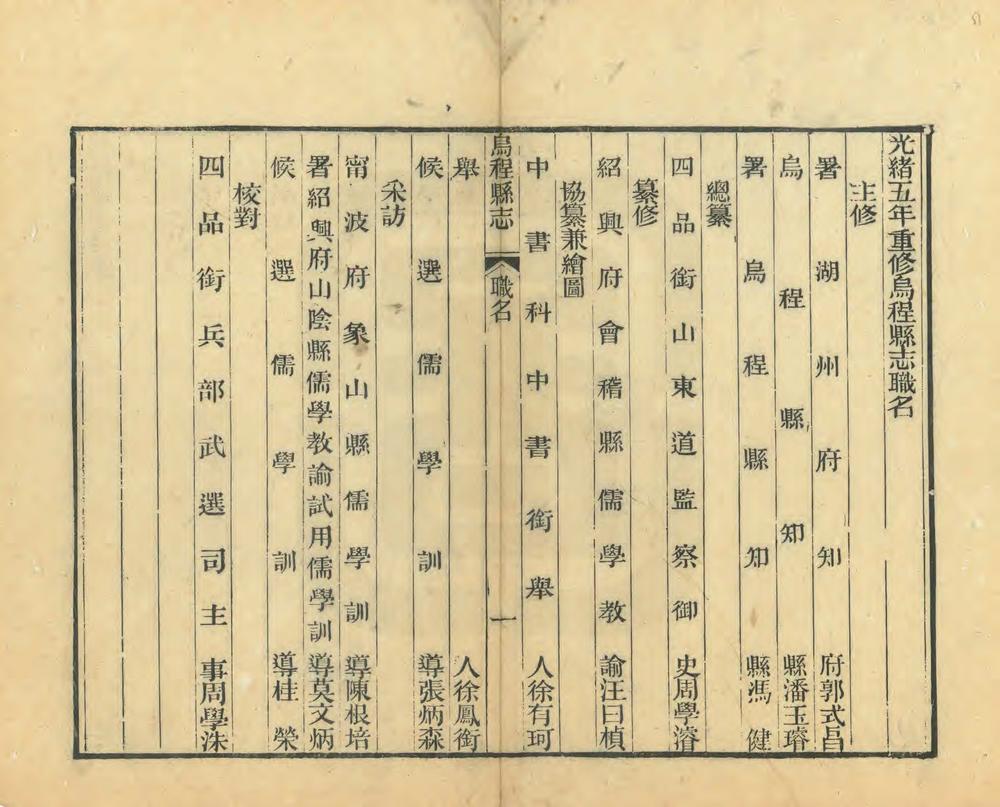 光緒五年重修烏程縣志職名
主修
署湖州府知府郭式昌
烏程縣知縣潘玉璿
署烏程縣知縣馮健
總纂
四品銜山東道監察御史周學濬
纂修
紹興府會稽縣儒學教諭汪曰楨
協纂兼繪圖
中書科中書銜舉人徐有珂
烏程縣志 職名 一
舉人徐鳳銜
候選儒學訓導張炳森
采訪
甯波府象山縣儒學訓導陳根培
署紹興府山陰縣儒學教諭試用儒學訓導莫文炳
候選儒學訓導桂榮
校對
四品銜兵部武選司主事周學洙